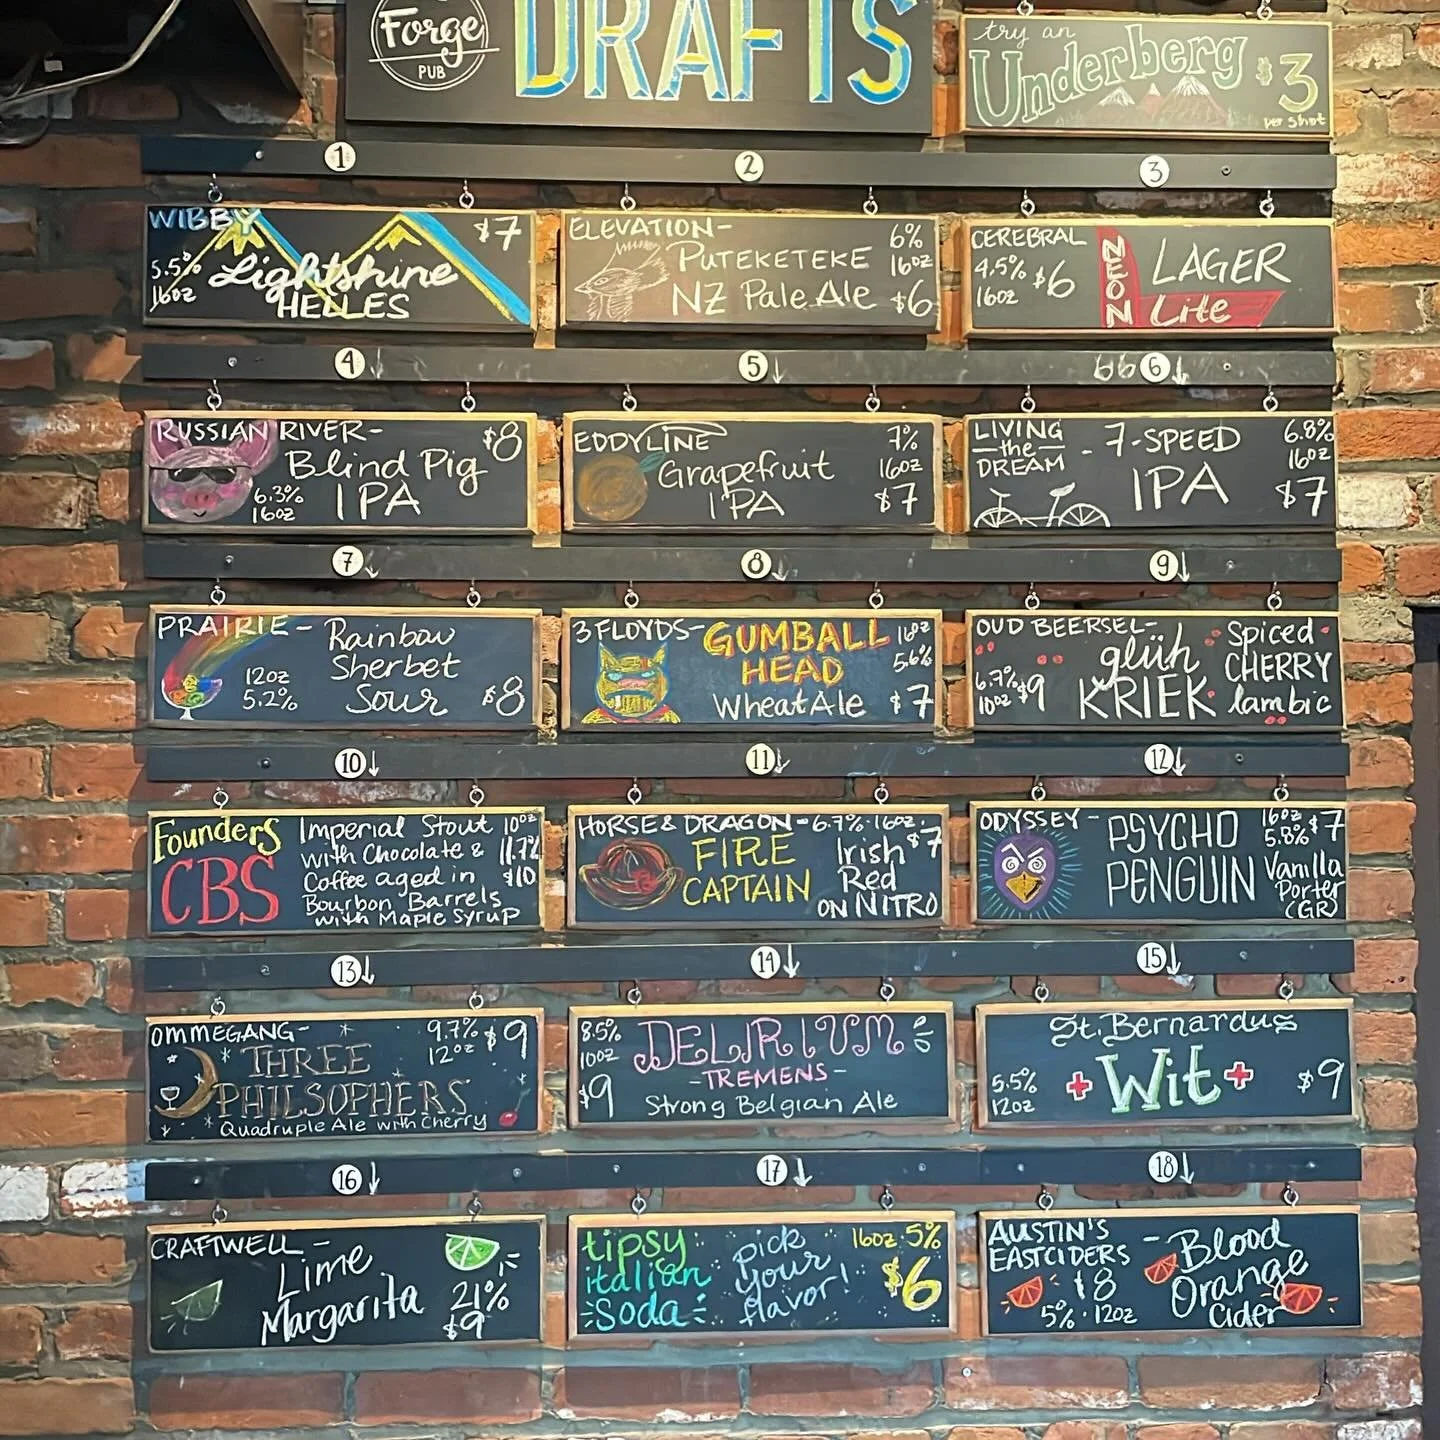 Forge
PUB
DRAFTS
try an
Underberg $3
per shot
1
2
3
WIBBY
$7
5.5%
16oz
Lightshine
HELLES
ELEVATION-
PUTEKETEKE
NZ Pale Ale
6%
16oz
$6
CEREBRAL
4.5%
16oz
$6
NEON
LAGER
Lite
4
5
6
RUSSIAN RIVER-
$8
Blind Pig
IPA
6.3%
16oz
EDDYLINE
Grapefruit
IPA
7%
16oz
$7
LIVING
-the-
DREAM
- 7-SPEED
IPA
6.8%
16oz
$7
7
8
9
PRAIRIE-
Rainbow
Sherbet
Sour
12oz
5.2%
$8
3 FLOYDS-
GUMBALL
HEAD
Wheat Ale
16oz
5.6%
$7
OUD BEERSEL-
6.7%
10oz
$9
glüh
KRIEK
Spiced
CHERRY
lambic
10
11
12
Founders
CBS
Imperial Stout
with Chocolate &
Coffee aged in
Bourbon Barrels
with Maple Syrup
10oz
11.7%
$10
HORSE & DRAGON-6.7%·16oz·
$7
FIRE
CAPTAIN
Irish
Red
ON NITRO
ODYSSEY-
PSYCHO
PENGUIN
16oz
5.8%
$7
Vanilla
Porter
(GR)
13
14
15
OMMEGANG-
9.7%
12oz
$9
THREE
PHILSOPHERS
Quadruple Ale with Cherry
8.5%
10oz
$9
DELIRIUM
-TREMENS-
Strong Belgian Ale
St. Bernardus
Wit
5.5%
12oz
$9
16
17
18
CRAFTWELL-
Lime
Margarita
21%
$9
tipsy
italian
Soda
pick
your
flavor!
16oz 5%
$6
AUSTIN'S
EASTCIDERS -
$8
5%·12oz
Blood
Orange
Cider